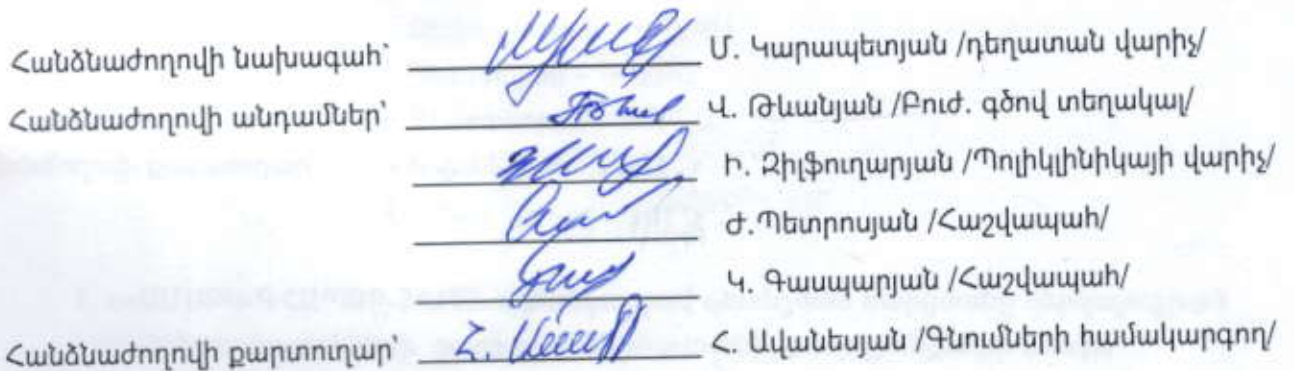 Հանձնաժողովի նախագահ՝ Մ. Կարապետյան /դեղատան վարիչ/
Հանձնաժողովի անդամներ՝ Վ. Թևանյան /Բուժ. գծով տեղակալ/
Ի. Զիլֆուղարյան /Պոլիկլինիկայի վարիչ/
Ժ.Պետրոսյան /Հաշվապահ/
Կ. Գասպարյան /Հաշվապահ/
Հանձնաժողովի քարտուղար՝ Հ. Ավանեսյան /Գնումների համակարգող/